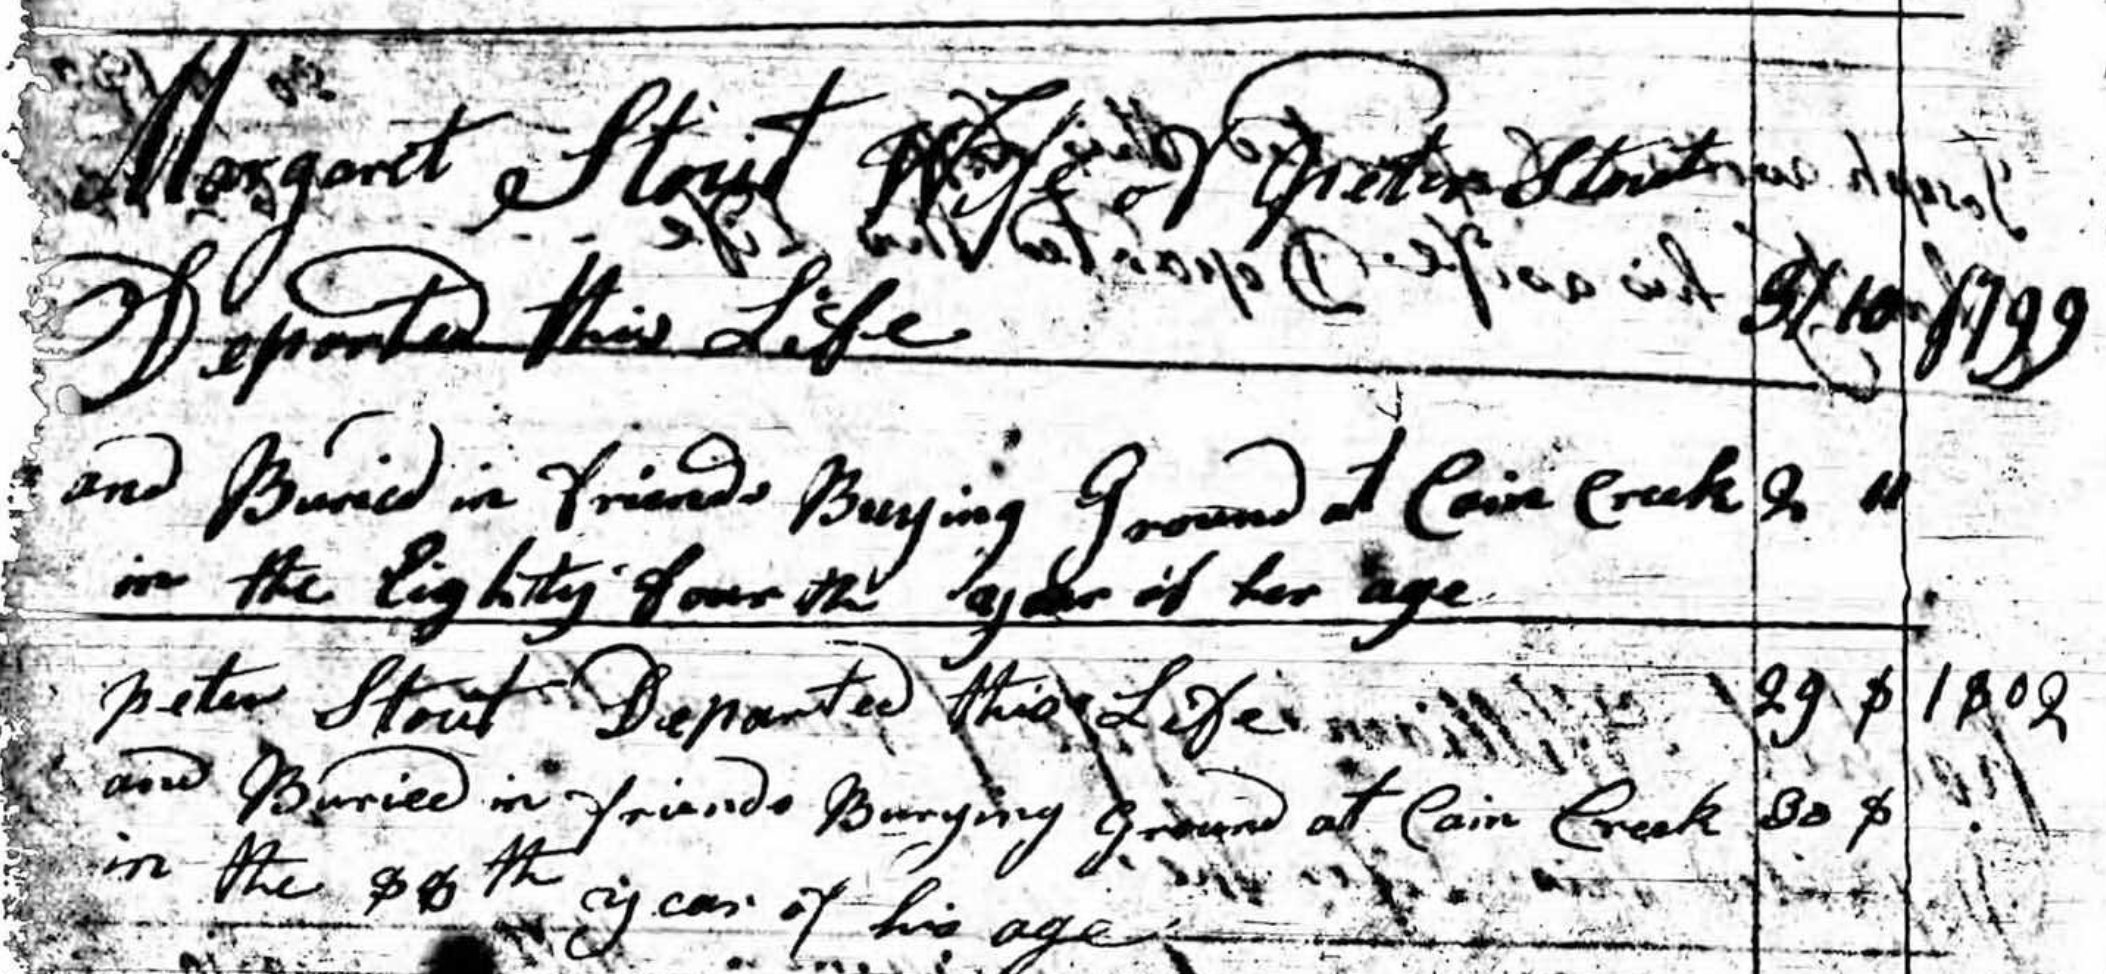 Margaret Stout Wife of Peter Stout
Departed this Life 31 10 1799
and Buried in friends Burying Ground at Cain Creek 2 11
in the Eighty fourth year of her age
peter Stout Departed this Life 29 8 1802
and Buried in friends Burying Ground at Cain Creek 30 8
in the 88th year of his age